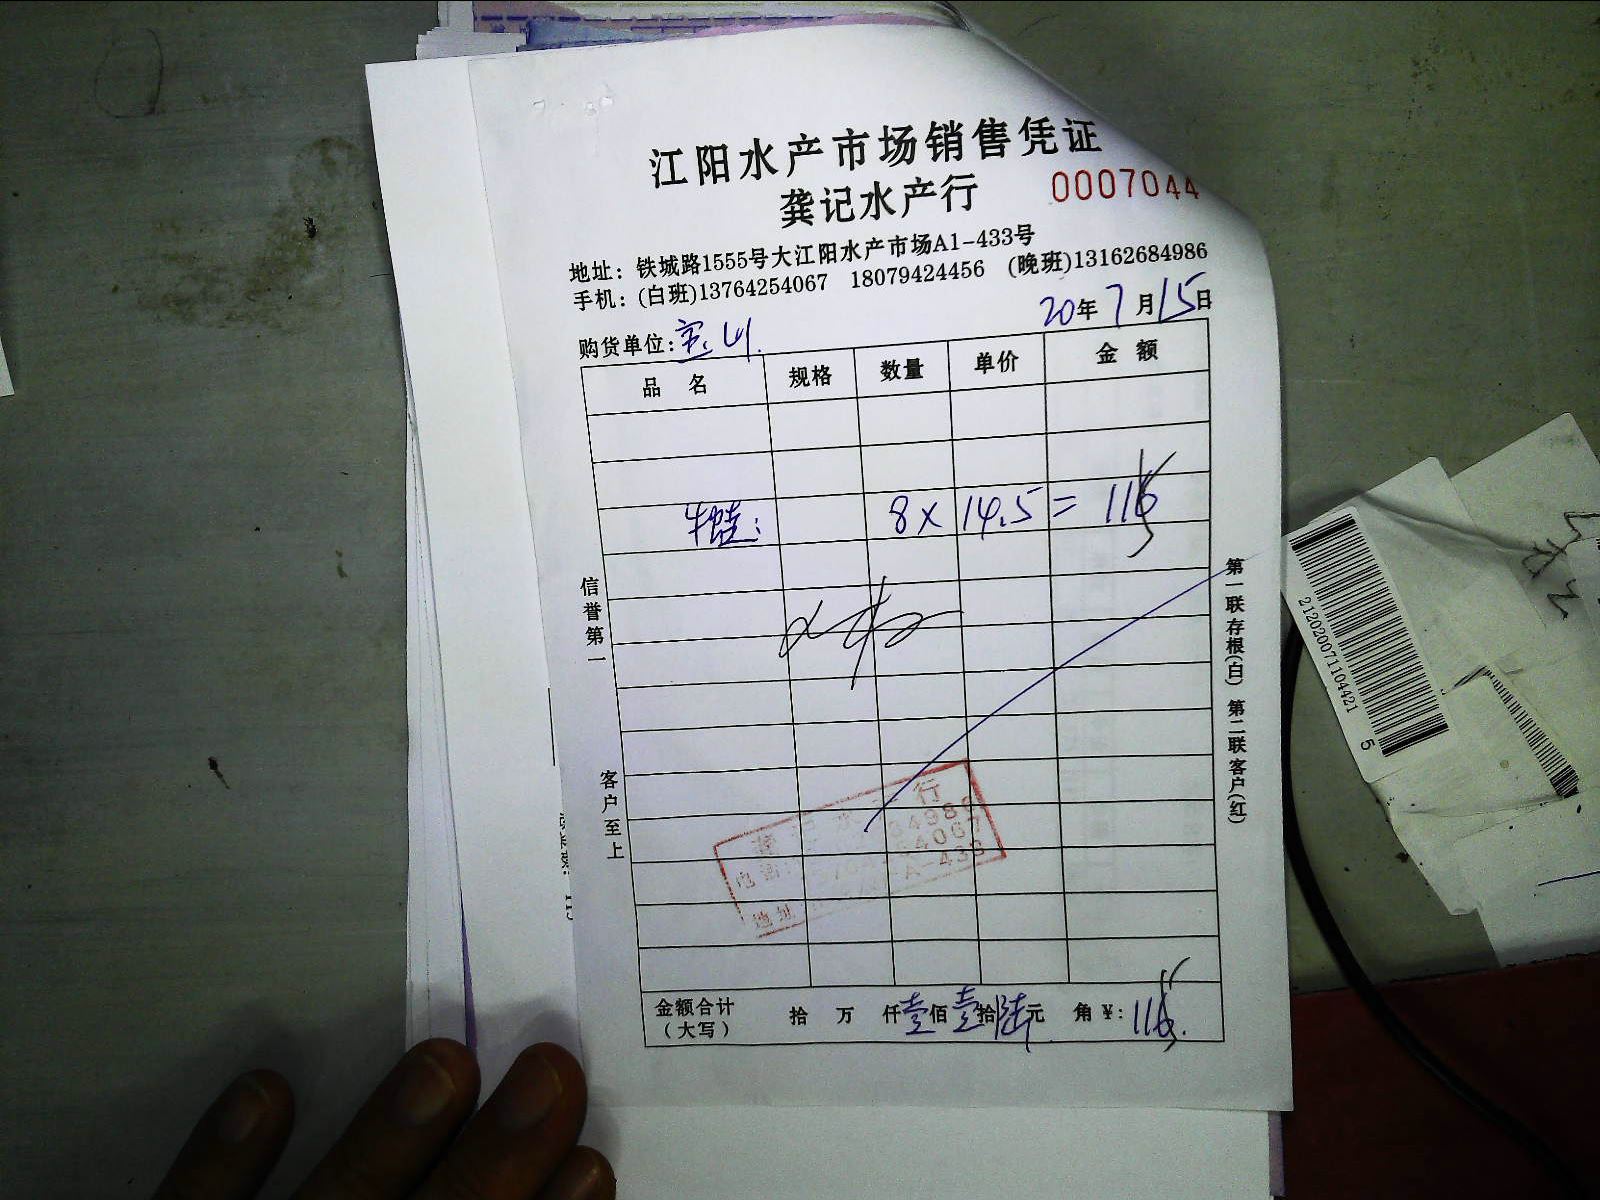 江阳水产市场销售凭证
龚记水产行 0007044
地址：铁城路1555号大江阳水产市场A1-433号
手机：(白班)13764254067 18079424456 (晚班)13162684986
20年7月15日
购货单位：宝山.
品名 规格 数量 单价 金额
牛蛙： 8 x 14.5 = 116
信誉第一
客户至上
第一联存根(白) 第二联客户(红)
行
电话
4067
地址 A-433
金额合计(大写) 拾 万 仟壹佰壹拾陆元 角 ¥: 116.
2120200711044215